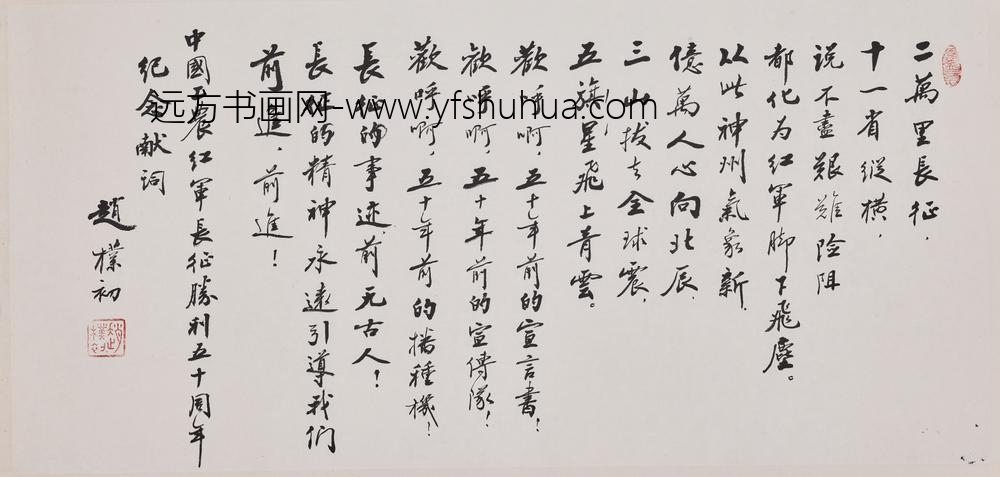 二萬里長征，
十一省縱橫，
說不盡艱難险阻
都化为红軍脚下飛塵。
从此神州氣象新，
億萬人心向北辰，
三山拔去全球震，
五旗星飛上青雲。
歡呼啊，五十年前的宣言書！
歡呼啊，五十年前的宣傳隊！
歡呼啊，五十年前的播種機！
長征的事迹前无古人！
長征的精神永遠引導我们
前進，前進！
中國工農红軍長征勝利五十周年
纪念献词
趙樸初
趙樸初
远方书画网 www.yfshuhua.com